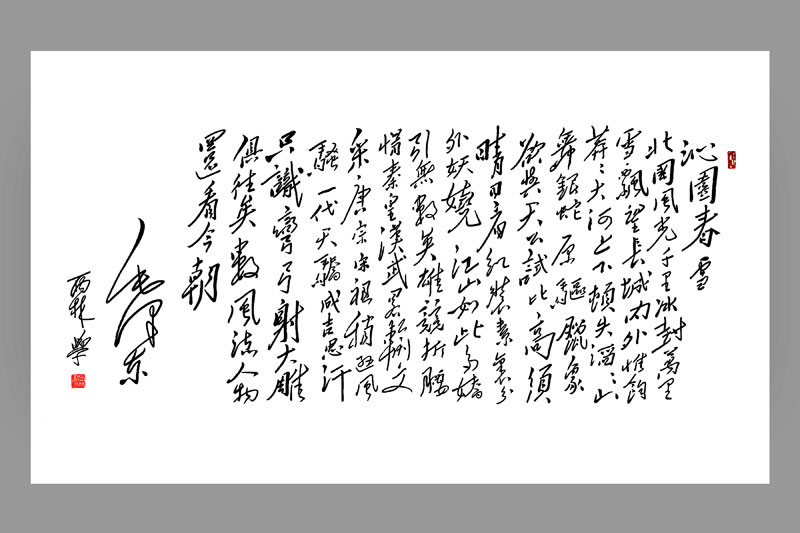 沁園春雪
北國風光千里冰封萬里
雪飄望長城內外惟餘
莽〻大河上下頓失滔〻山
舞銀蛇原驅蠟象
欲與天公試比高須
晴日看紅裝素裹分
外妖嬈江山如此多嬌
引無數英雄競折腰
惜秦皇漢武略輸文
采唐宗宋祖稍遜風
騷一代天驕成吉思汗
只識彎弓射大雕
俱往矣數風流人物
還看今朝
毛澤东